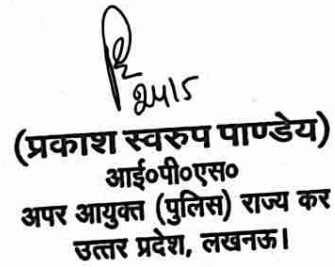 24/5
(प्रकाश स्वरुप पाण्डेय)
आई०पी०एस०
अपर आयुक्त (पुलिस) राज्य कर
उत्तर प्रदेश, लखनऊ।